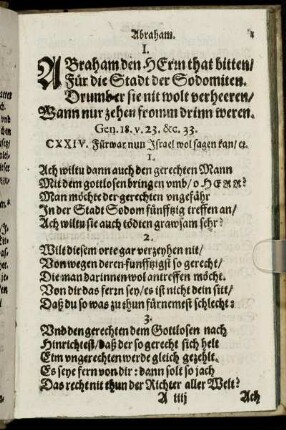 Abraham.
I.
ABraham den HErrn that bitten/
Für die Stadt der Sodomiten.
Drumb er sie nit wolt verheeren/
Wann nur zehen fromm drinn weren.
Gen. 18. v. 23. &c. 33.
CXXIV. Fürwar nun Israel wol sagen kan/ ꝛc.
1.
Ach wiltu dann auch den gerechten Mann
Mit dem gottlosen bringen vmb/ o HERR?
Man möchte der gerechten vngefähr
In der Stadt Sodom fünffzig treffen an/
Ach wiltu sie auch tödten grawsam sehr?
2.
Wilt diesem orte gar verzeyhen nit/
Von wegen deren funffzigst so gerecht/
Die man darinnen wol antreffen möcht.
Von dir das ferrn sey/ es ist nicht dein sitt/
Daß du so was zu thun fürnemest schlecht:
3.
Vnd den gerechten dem Gottlosen nach
Hinrichtest/ daß der so gerecht sich helt
Eim vngerechten werde gleich gezehlt.
Es seye fern von dir: dann solt so jach
Das recht nit thun der Richter aller Welt?
A iiij
Ach